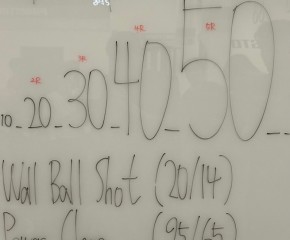 2R 3R 4R 5R
10-20-30-40-50--
Wall Ball Shot (20/14)
Power Clean (95/65)